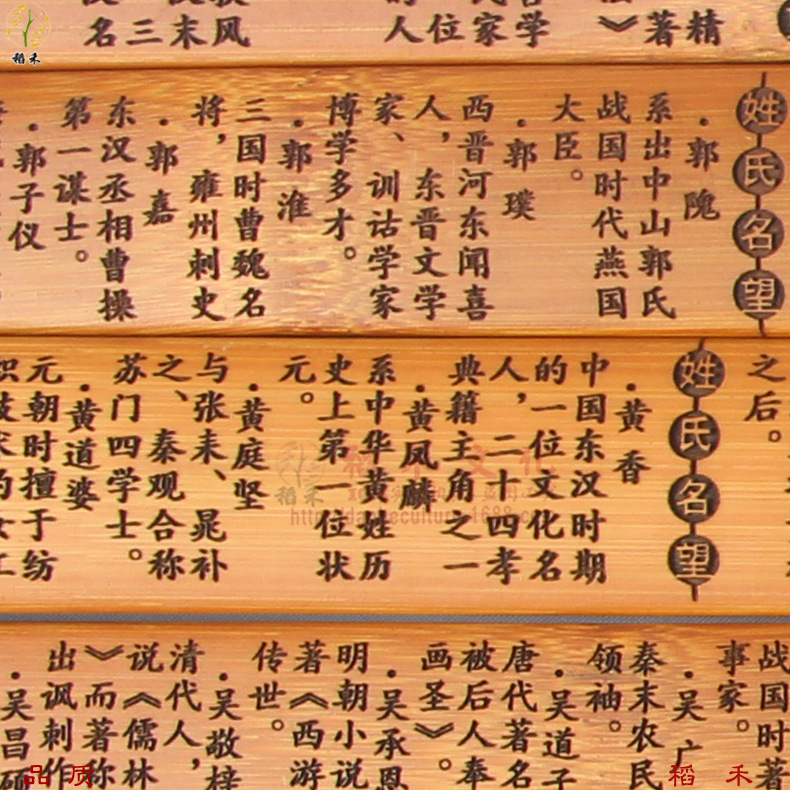 精
著
学
家
位
人
风
末
三
名
姓氏名望
·郭隗
系出中山郭氏
战国时代燕国
大臣。
·郭璞
西晋河东闻喜
人，东晋文学
家、训诂学家
博学多才。
·郭淮
三国时曹魏名
将，雍州刺史
·郭嘉
东汉丞相曹操
第一谋士。
·郭子仪
之后。
姓氏名望
·黄香
中国东汉时期
的一位文化名
人，二十四孝
典籍主角之一
·黄凤麟
系中华黄姓历
史上第一位状
元。
·黄庭坚
与张耒、晁补
之、秦观合称
苏门四学士。
·黄道婆
元朝时擅于纺
战国时著
事家。
·吴广
秦末农民
领袖。
·吴道子
唐代著名
被后人奉
画圣》。
·吴承恩
明朝小说
著《西游
传世。
·吴敬梓
清代人，
说《儒林
》而著称
出讽刺作
·吴昌硕
稻禾
稻禾文化
稻禾
品质
稻禾